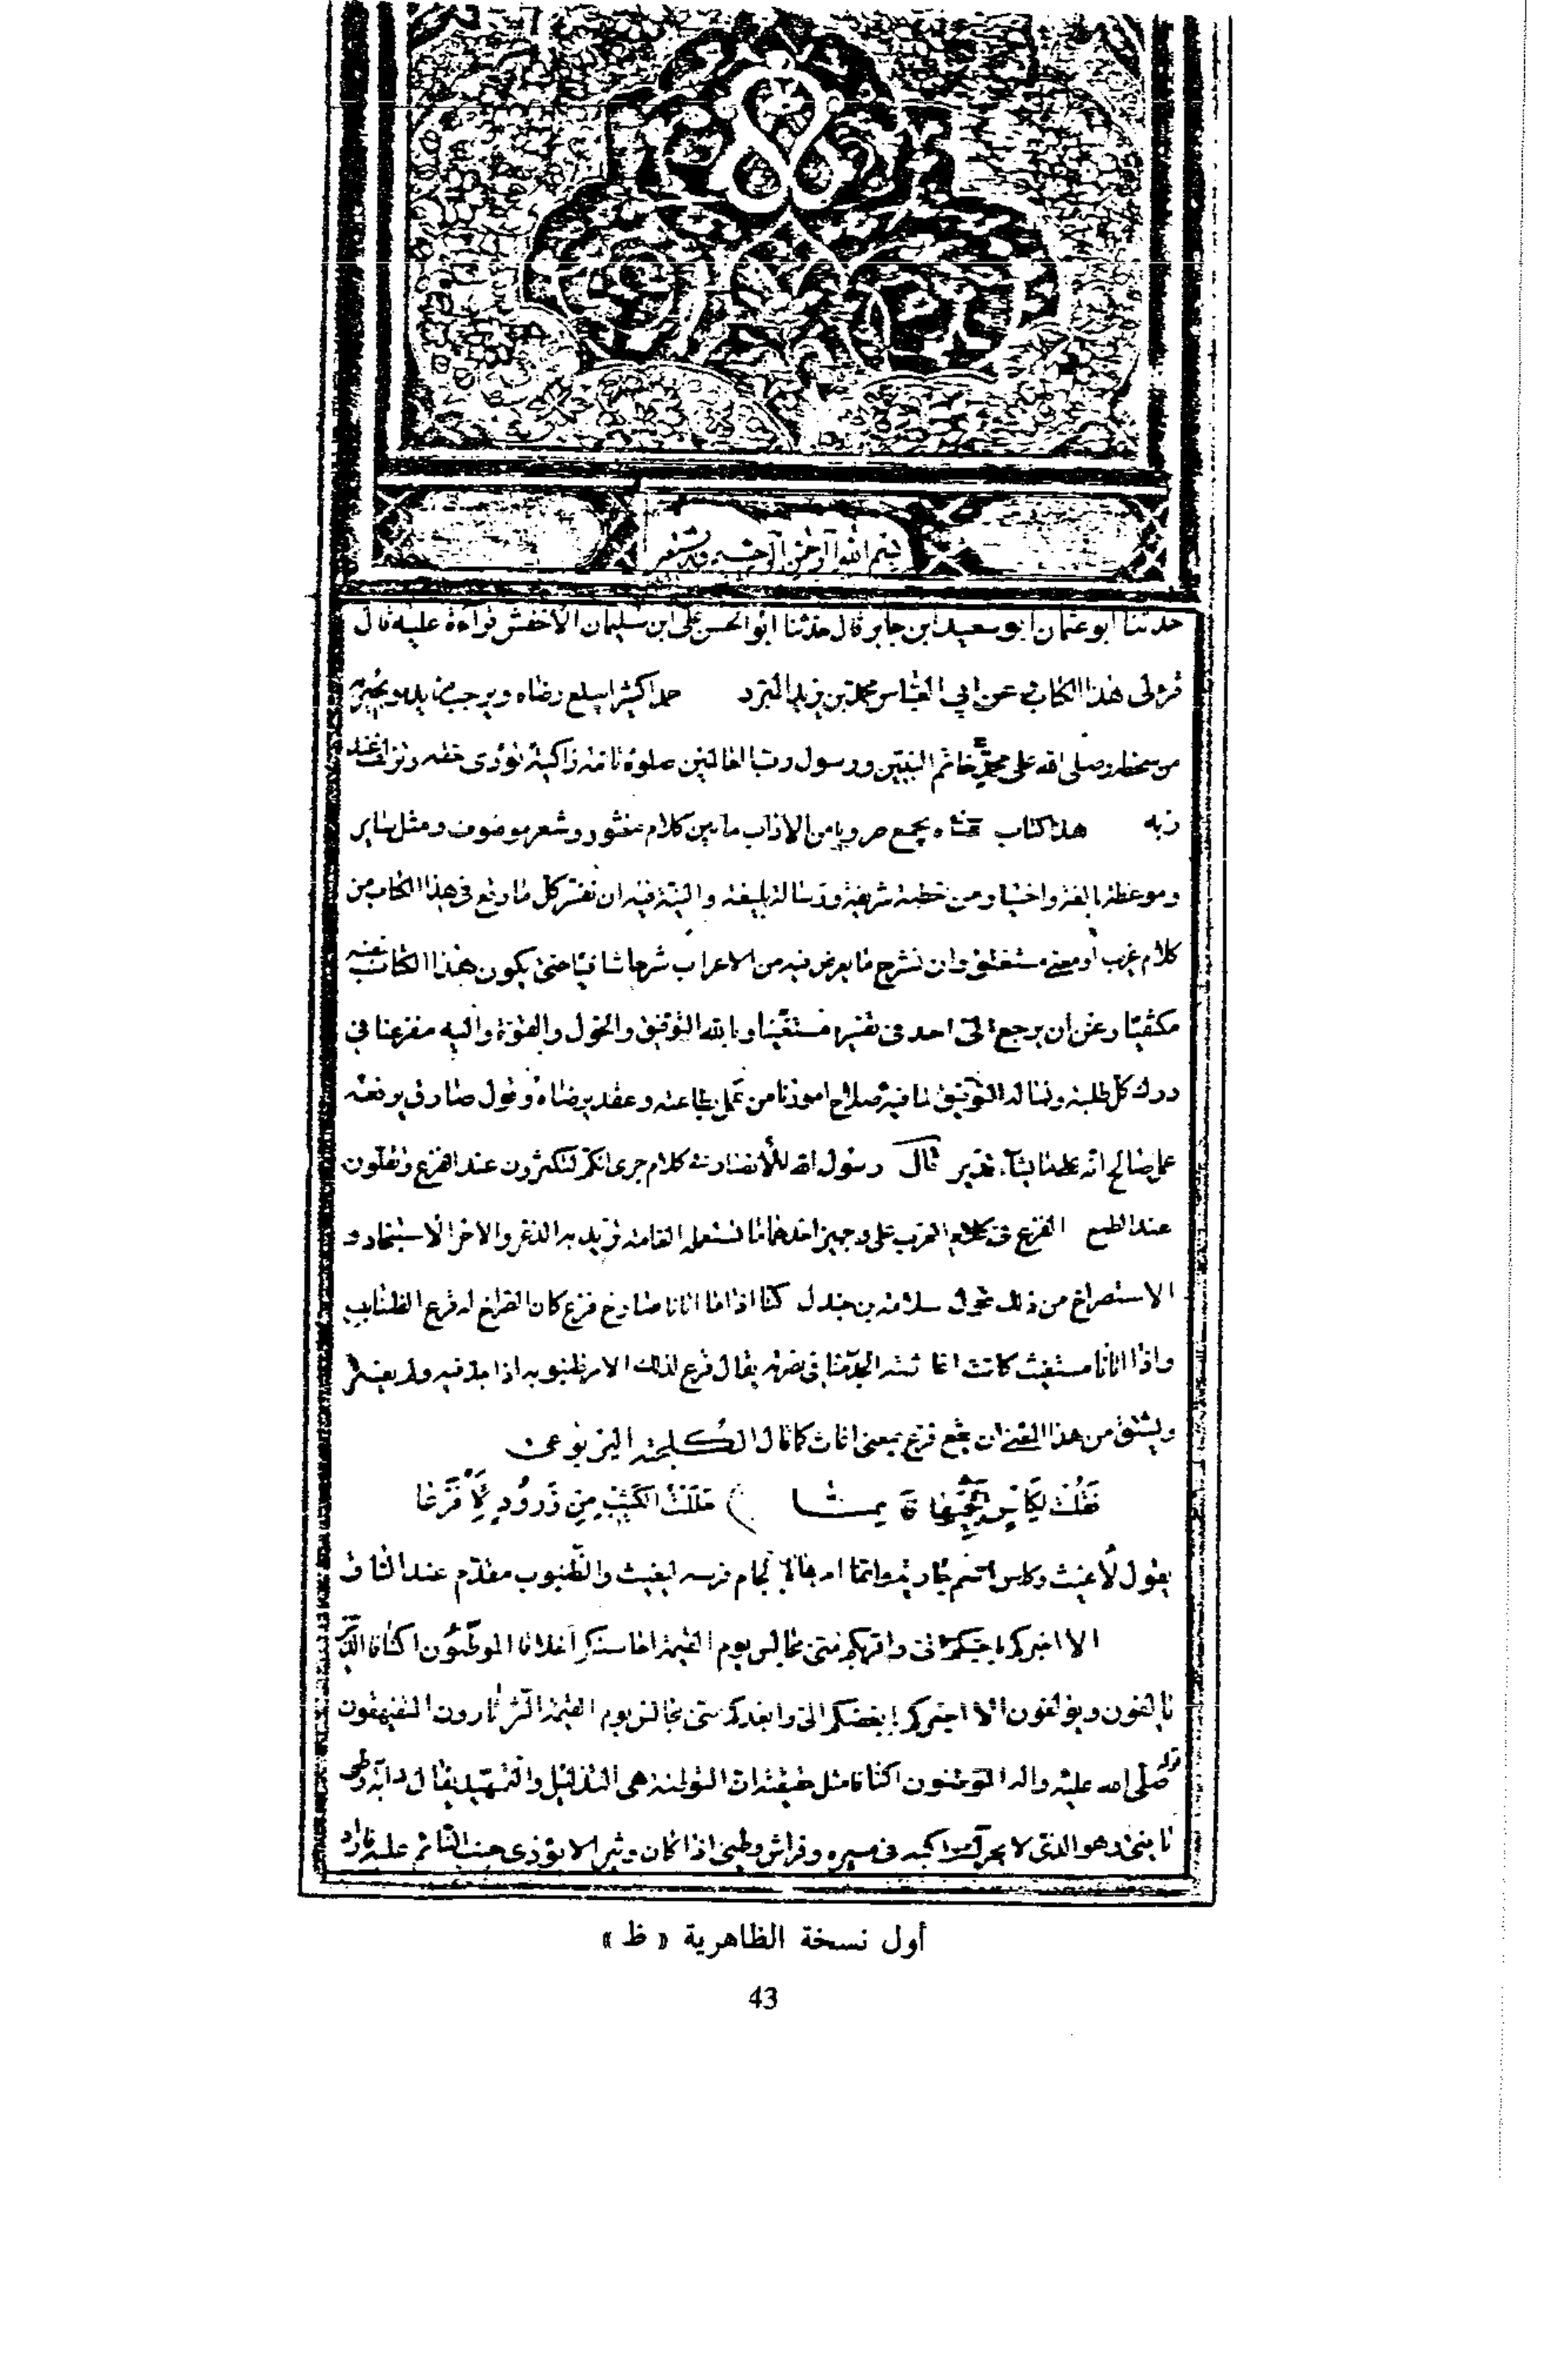 بسم الله الرحمن الرحيم وبه نستعين
حدثنا ابو عثمان ابو سعيد ابن جابر قال حدثنا ابو الحسن على ابن سليمان الاخفش قراءة عليه قال
قرئ لى هذا الكتاب عن ابي العباس محمد بن يزيد المبرد حمدا كثيرا يبلغ رضاه ويوجب مزيده ويجير
من سخطه وصلى الله على محمد خاتم النبيين ورسول رب العالمين صلوة تامة زاكية تؤدى حقه وتزلفه عند
ربه هذا كتاب يجمع ضروبا من الاداب ما بين كلام منثور وشعر موصوف ومثل ساير
وموعظة بالغة واختيار من خطبة شريفة ورسالة بليغة والنية فيه ان نفسر كل ما وقع فى هذا الكتاب من
كلام غريب او معنى مستغلق وان نشرح ما يعرض فيه من الاعراب شرحا شافيا حتى يكون هذا الكتاب بنفسه
مكتفيا وعن ان يرجع الى احد فى تفسيره مستغنيا وبالله التوفيق والحول والقوة واليه مفزعنا فى
درك كل طلبة ونساله التوفيق لما فيه صلاح امورنا من عمل بطاعته وعقد برضاه وقول صادق يرفعه
عمل صالح انه على ما يشآء قدير قال رسول الله للأنصار فى كلام جرى انكم لتكثرون عند الفزع وتقلون
عند الطمع الفزع فى كلام العرب على وجهين احدهما ما تستعمله العامة تريد به الذعر والاخر الاستنجاد و
الاستصراخ من ذلك قول سلامة بن جندل كنا اذا ما اتانا صارخ فزع كان الصراخ له قرع الظنابيب
واذا اتانا مستغيث كانت اغاثته الجد منا فى نصرته يقال قرع لذلك الامر ظنبوبه اذا جد فيه ولم يفتر
ويشتق من هذا المعنى ان يقع فزع بمعنى اغاث كما قال الكلحبة اليربوعى
فَقُلْتُ لِكَأْسٍ أَلْجِمِيهَا فَإِنَّمَا حَلَلْتُ الكَثِيبَ مِنْ زَرُودٍ لِأَفْزَعَا
يقول لأغيث وكاس اسم جارية وانما امرها بالجام فرسه ليغيث والظنبوب مقدم عند الساق
الا اخبركم باحبكم الى واقربكم منى مجالس يوم القيمة احاسنكم أخلاقا الموطئون اكنافا الذين
يألفون ويؤلفون الا اخبركم بابغضكم الى وابعدكم منى مجالس يوم القيمة الثرثارون المتفيهقون
قوله صلى الله عليه واله الموطئون اكنافا مثل حقيقته ان التوطئة هى التذليل والتمهيد يقال دابة وطى
يا فتى وهو الذى لا يحرك راكبه فى مسيره وفراش وطئ اذا كان وثيرا لا يؤذى جنب النائم عليه فاراد
أول نسخة الظاهرية « ظ »
43